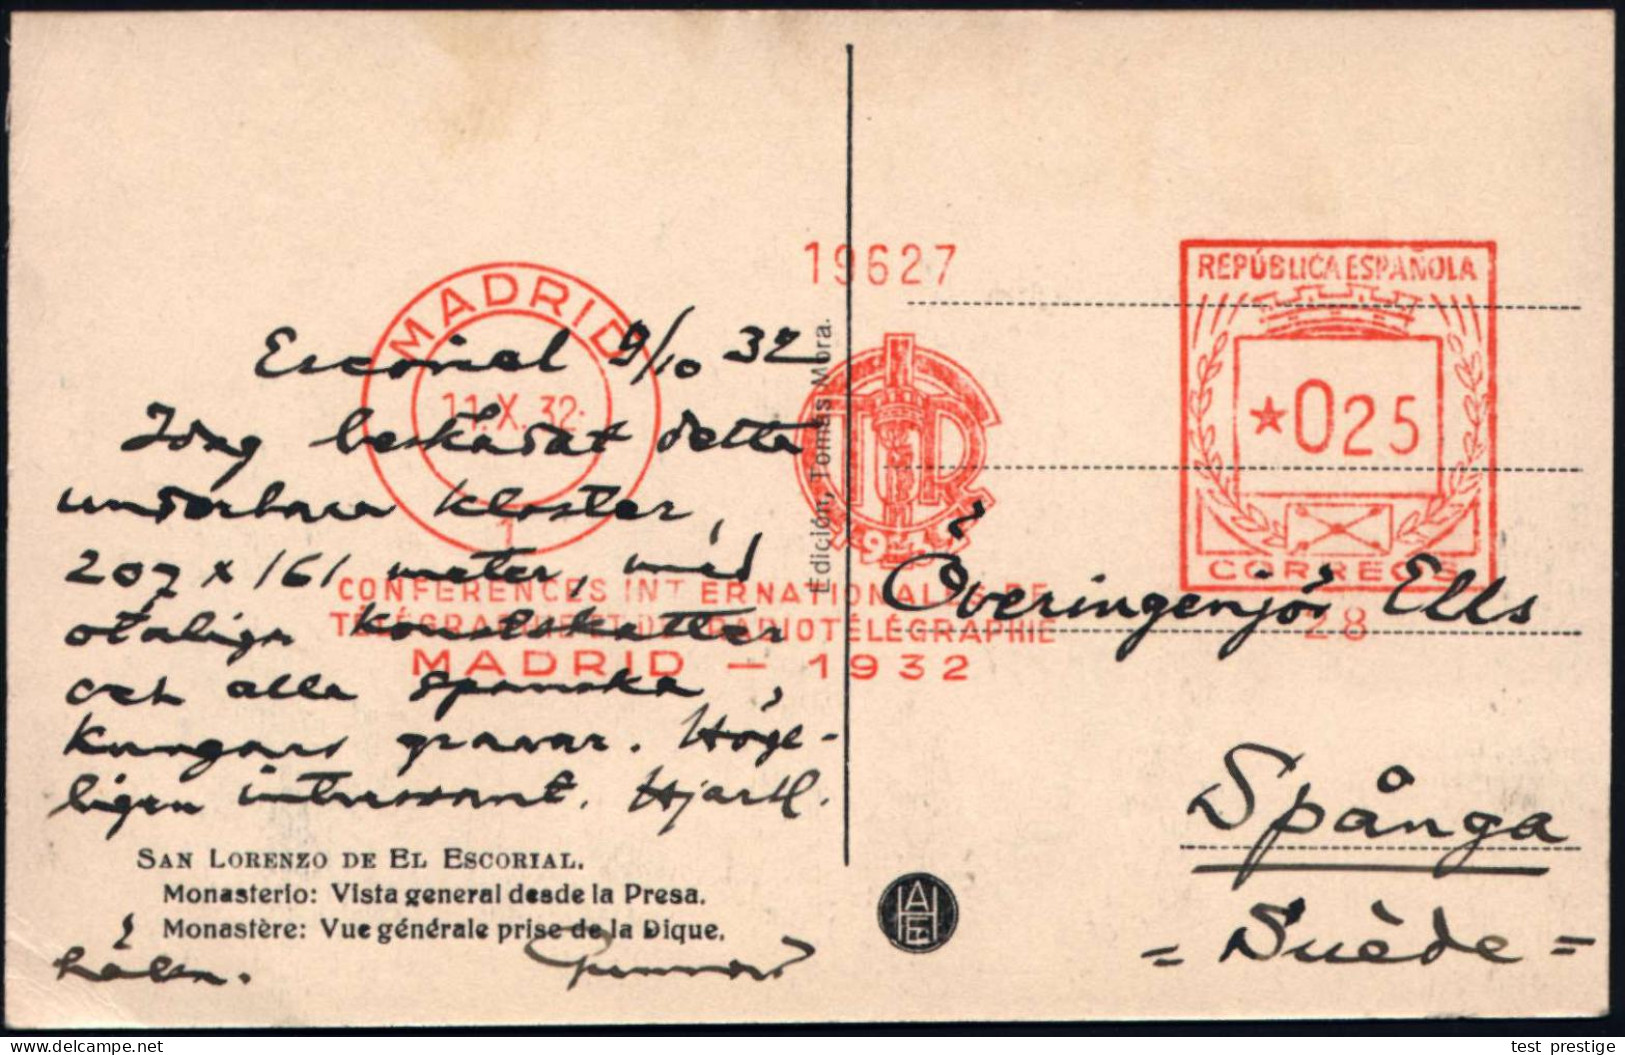 19627
REPÚBLICA ESPAÑOLA
*025
CORREOS
28
MADRID
11.X.32
1
CONFERENCES INTERNATIONALES DE
TÉLÉGRAPHIE ET DE RADIOTÉLÉGRAPHIE
MADRID - 1932
Edición, Tomás Mora.
Escorial 9/10 32
Idag beskådat detta
underbara kloster,
207 x 161 meter, med
otaliga konstskatter
och alla spanska
kungars gravar. Höge-
ligen intressant. Hjärtl.
hälsn.
Överingenjör Ells
Spånga
= Suède =
SAN LORENZO DE EL ESCORIAL.
Monasterio: Vista general desde la Presa.
Monastère: Vue générale prise de la Dique.
test prestige